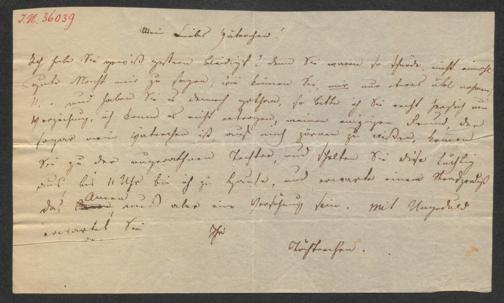 I.N. 36039
Mein Liebes Väterchen!
Ich habe Sie gewiß gestern beleidigt? denn Sie waren so spröde, nicht einmal
gute Nacht mir zu sagen, wie können Sie mir nur etwas übel nehmen
!!. und haben Sie es dennoch gethan, so bitte ich Sie recht herzlich um
Verzeihung, ich kann es nicht ertragen, meinen einzigen Freund, der
sogar mein Väterchen ist auf mich zürnen zu wissen, kommen
Sie zu der ungerathnen Tochter, und schelten Sie diese tüchtig
aus bis 11 Uhr bin ich zu Hause, und erwarte eine Strafpredigt
Amen
das muß aber eine Versöhnung sein. Mit Ungeduld
erwartet Sie Ihr
Töchterchen.